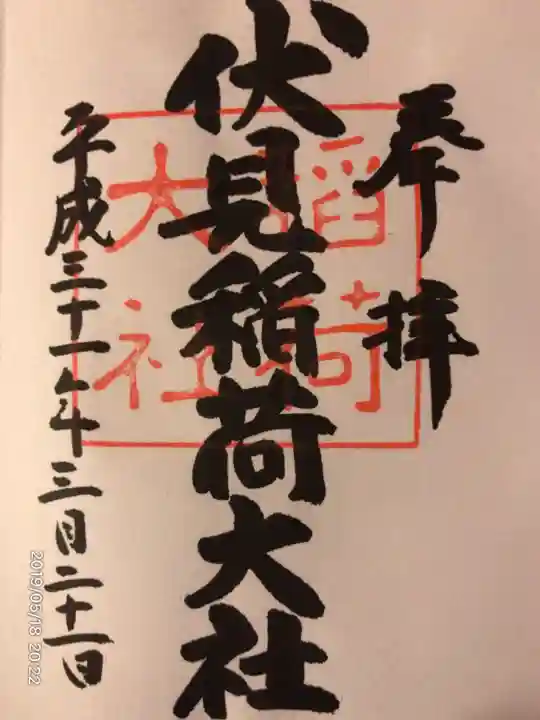 奉拝
伏見稲荷大社
稲荷
大社
平成三十一年三月二十一日
2019/05/18 20:22